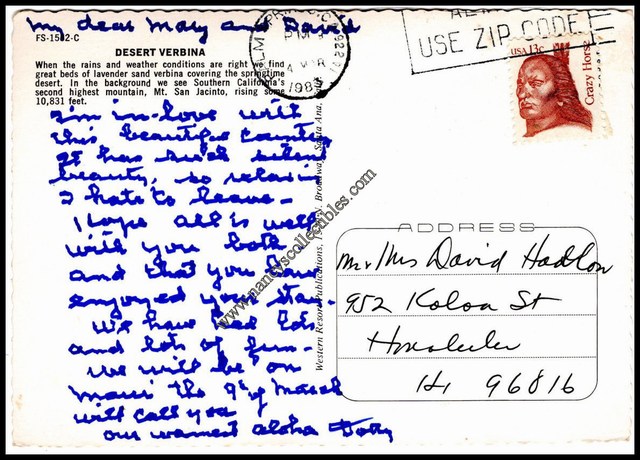 my dear Mary and David
FS-1502-C
DESERT VERBINA
When the rains and weather conditions are right we find
great beds of lavender sand verbina covering the springtime
desert. In the background we see Southern California's
second highest mountain, Mt. San Jacinto, rising some
10,831 feet.
I'm in love with
this beautiful country
It has such silent
beauty, so relaxin
I hate to leave.
Hope all is well
with you both
and that you have
enjoyed your stay.
We have had lots
and lots of fun.
We will be on
Maui the 9th of March
will call you
our warmest aloha Dotty
PM
1983
USE ZIP CODE
USA 13c
Crazy Horse
Western Resort Publications, N. Broadway, Santa Ana,
www.nancyscollectibles.com
ADDRESS
Mr & Mrs David Hadlow
952 Koloa St
Honolulu
Hi 96816